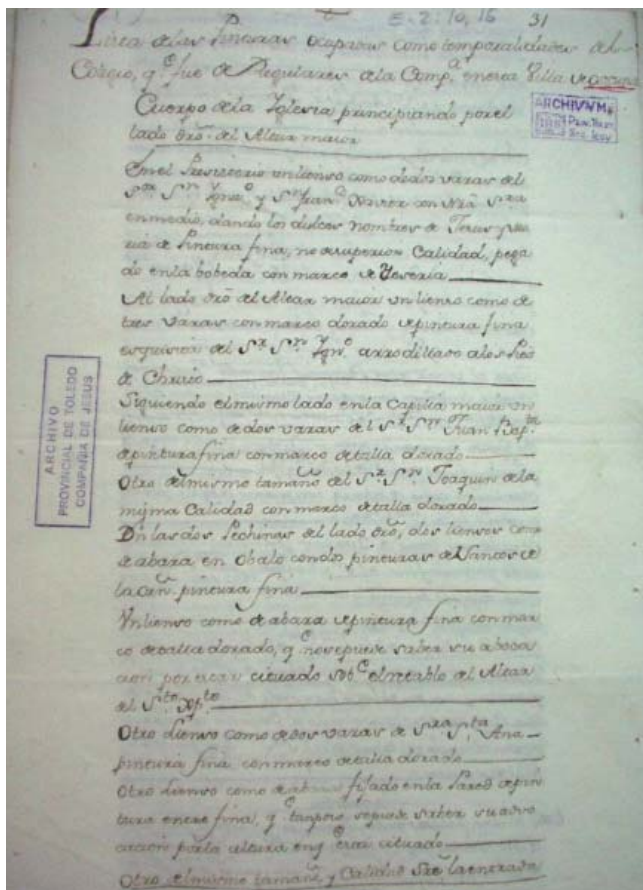 E-2:10,16 31
Lista de las Pinturas ocupadas como temporalidades del
Colegio, q.e fue de Regulares de la Comp.a en esta Villa de
Cuerpo de la Yglesia principiando por el
lado dro. del Altar maior
ARCHIVVM
En el Presviterio un lienso como de dos varas del
S.or S.n Ygna.o y S.n Fran.co Xavier con Nrã S.ra
en medio, dando los dulces nombres de Jesus y Ma
ria de Pintura fina, no superior Calidad, pega
do en la bobeda con marco de Yeseria
Al lado dro. del Altar maior un lienso como de
tres varas con marco dorado de pintura fina
esquisita del S.r S.n Ygn.o arrodillado a los Pies
de Christo
Siguiendo el mismo lado en la Capilla maior un
lienso como de dos varas del S.r S.n Juan Bap.ta
de pintura fina con marco de talla dorado
Otro del mismo tamaño del S.r S.n Joaquin de la
misma Calidad con marco de talla dorado
En las dos Pechinas del lado dro, dos liensos como
de a bara en Obalo con dos pinturas de Santos de
la Orn. pintura fina
Un lienso como de a bara de pintura fina con mar
co de talla dorado, q.e no se puede saber su aboca
cion por estar cituado sob.e el retablo del Altar
del S.to Xpto
Otro Lienso como de dos varas de S.ra S.ta Ana
pintura fina con marco de talla dorado
Otro Lienso como de fijado en la Pared de pin
tura entre fina, q.e tanpoco se puede saber su advo
cacion por la altura en q.e esta cituado
Otro del mismo tamañ.o y Calidad Sre. la entrada
ARCHIVO
PROVINCIAL DE TOLEDO
COMPAÑIA DE JESUS